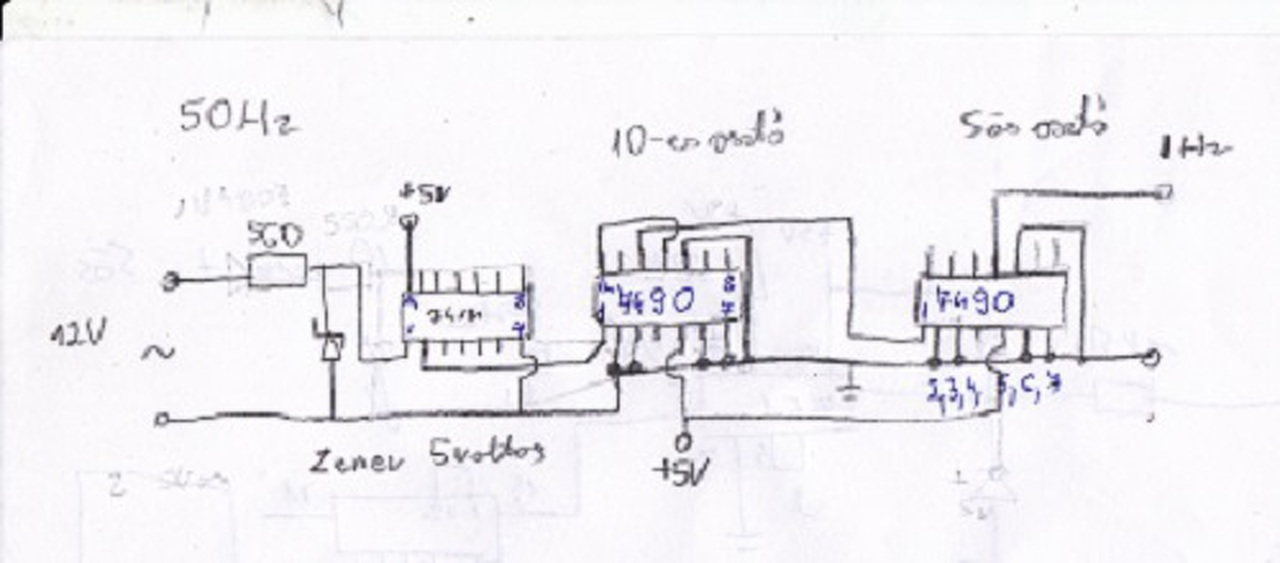 50Hz
10-es osztó
5ös osztó
1Hz
+5V
560
12V
~
7490
7490
2,3,4, 5,6,7
Zener 5voltos
+5V